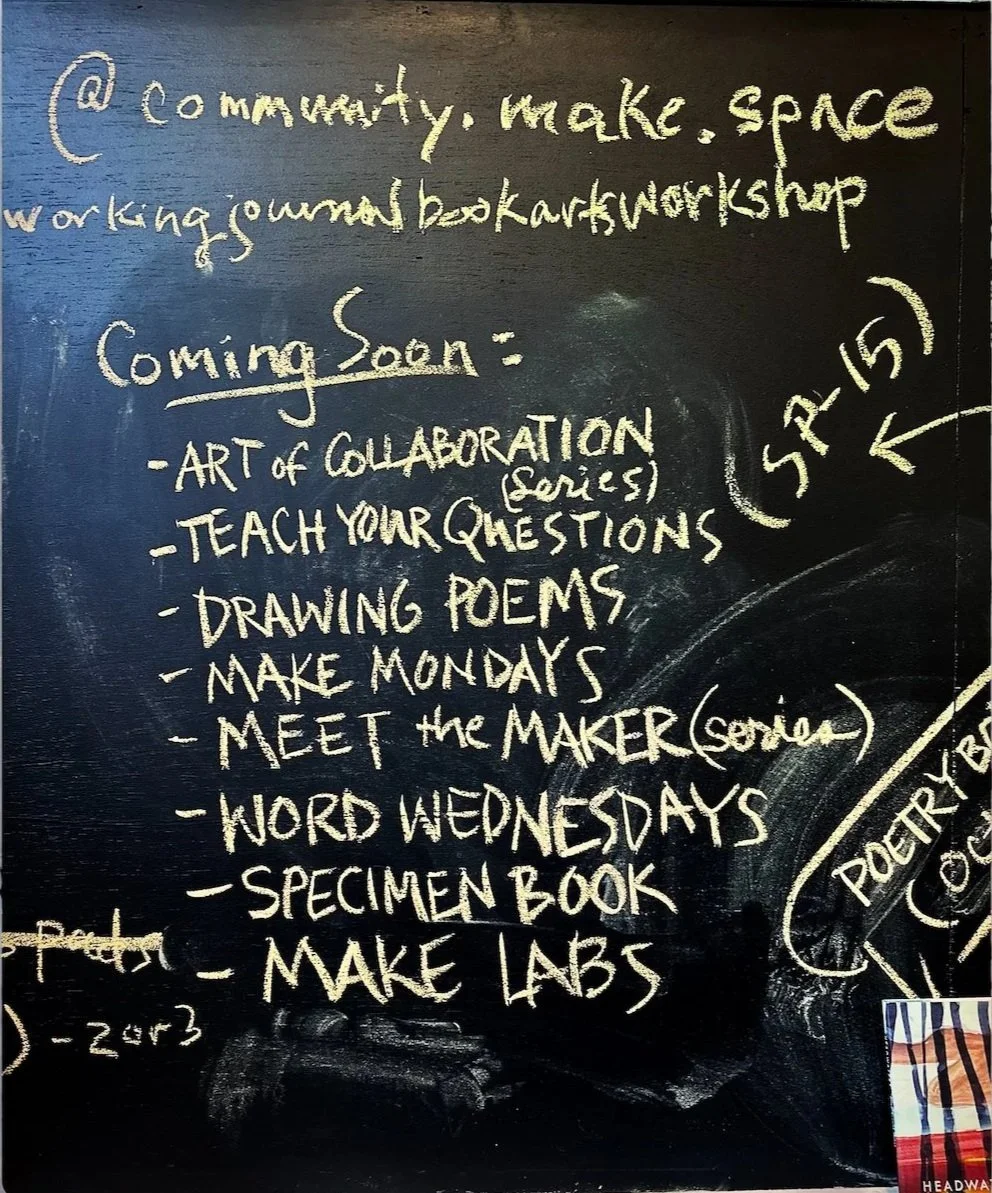 @community.make.space
workingjournalbookartsworkshop
Coming Soon:
(SP-15)
- ART of COLLABORATION
(series)
- TEACH YOUR QUESTIONS
- DRAWING POEMS
- MAKE MONDAYS
- MEET the MAKER (series)
- WORD WEDNESDAYS
- SPECIMEN BOOK
- MAKE LABS
POETRY
) - 2 or 3
HEADWA